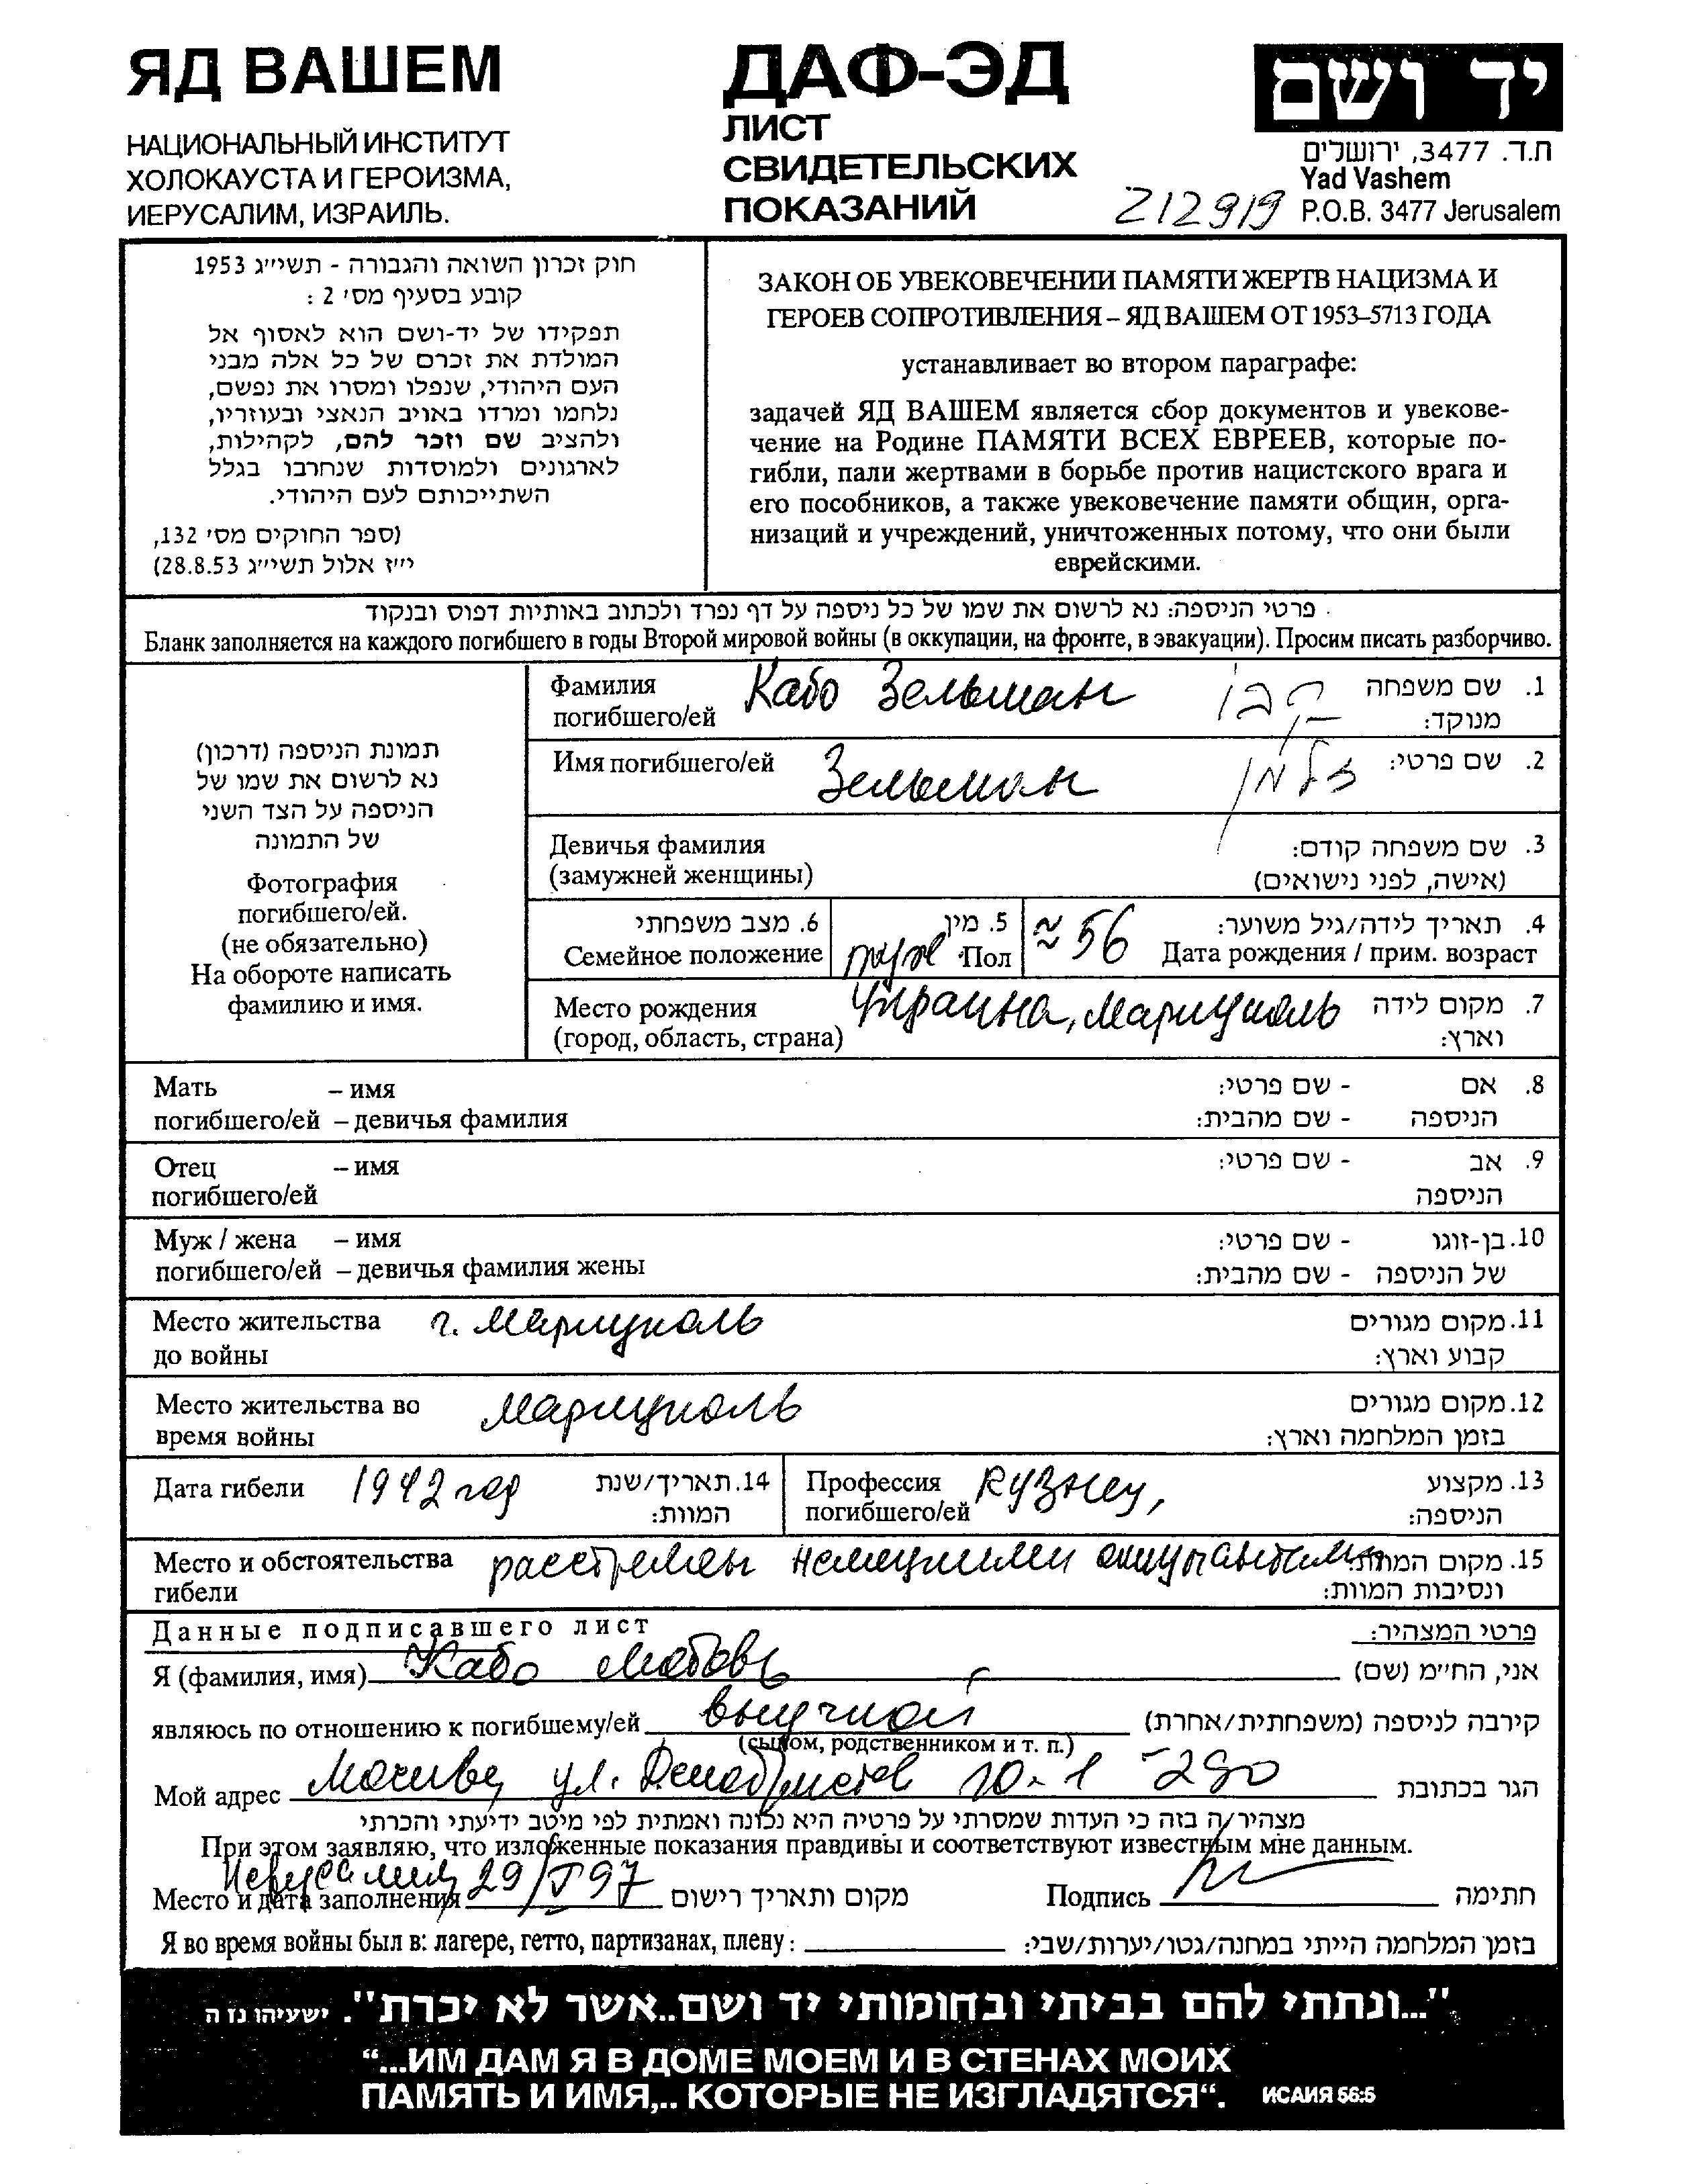 ЯД ВАШЕМ
НАЦИОНАЛЬНЫЙ ИНСТИТУТ
ХОЛОКАУСТА И ГЕРОИЗМА,
ИЕРУСАЛИМ, ИЗРАИЛЬ.
ДАФ-ЭД
ЛИСТ
СВИДЕТЕЛЬСКИХ
ПОКАЗАНИЙ
212919
יד ושם
ת.ד. 3477, ירושלים
Yad Vashem
P.O.B. 3477 Jerusalem
חוק זכרון השואה והגבורה - תשי״ג 1953
קובע בסעיף מס׳ 2 :
תפקידו של יד-ושם הוא לאסוף אל
המולדת את זכרם של כל אלה מבני
העם היהודי, שנפלו ומסרו את נפשם,
נלחמו ומרדו באויב הנאצי ובעוזריו,
ולהציב שם וזכר להם, לקהילות,
לארגונים ולמוסדות שנחרבו בגלל
השתייכותם לעם היהודי.
(ספר החוקים מס׳ 132,
י״ז אלול תשי״ג 28.8.53)
ЗАКОН ОБ УВЕКОВЕЧЕНИИ ПАМЯТИ ЖЕРТВ НАЦИЗМА И
ГЕРОЕВ СОПРОТИВЛЕНИЯ – ЯД ВАШЕМ ОТ 1953–5713 ГОДА
устанавливает во втором параграфе:
задачей ЯД ВАШЕМ является сбор документов и увекове-
чение на Родине ПАМЯТИ ВСЕХ ЕВРЕЕВ, которые по-
гибли, пали жертвами в борьбе против нацистского врага и
его пособников, а также увековечение памяти общин, орга-
низаций и учреждений, уничтоженных потому, что они были
еврейскими.
פרטי הניספה: נא לרשום את שמו של כל ניספה על דף נפרד ולכתוב באותיות דפוס ובנקוד
Бланк заполняется на каждого погибшего в годы Второй мировой войны (в оккупации, на фронте, в эвакуации). Просим писать разборчиво.
תמונת הניספה (דרכון)
נא לרשום את שמו של
הניספה על הצד השני
של התמונה
Фотография
погибшего/ей.
(не обязательно)
На обороте написать
фамилию и имя.
Фамилия погибшего/ей Кабо Зельман קבו 1. שם משפחה
מנוקד:
Имя погибшего/ей Зельман זלמן 2. שם פרטי:
Девичья фамилия 3. שם משפחה קודם:
(замужней женщины) (אישה, לפני נישואים)
6. מצב משפחתי 5. מין 4. תאריך לידה/גיל משוער:
Семейное положение муж Пол ≈ 56 Дата рождения / прим. возраст
Место рождения Украина, Мариуполь 7. מקום לידה
(город, область, страна) וארץ:
Мать – имя 8. אם - שם פרטי:
погибшего/ей – девичья фамилия הניספה - שם מהבית:
Отец – имя 9. אב - שם פרטי:
погибшего/ей הניספה
Муж / жена – имя 10. בן-זוגו - שם פרטי:
погибшего/ей – девичья фамилия жены של הניספה - שם מהבית:
Место жительства г. Мариуполь 11. מקום מגורים
до войны קבוע וארץ:
Место жительства во Мариуполь 12. מקום מגורים
время войны בזמן המלחמה וארץ:
Дата гибели 1942 год 14. תאריך/שנת
המוות:
Профессия кузнец, 13. מקצוע
погибшего/ей הניספה:
Место и обстоятельства расстрелен немецкими оккупантами 15. מקום המוות
гибели ונסיבות המוות:
Данные подписавшего лист פרטי המצהיר:
Я (фамилия, имя) Кабо Любовь אני, הח״מ (שם)
являюсь по отношению к погибшему/ей внучкой קירבה לניספה (משפחתית/אחרת)
(сыном, родственником и т. п.)
Мой адрес ул. Декабристов 10-1 -290 הגר בכתובת
מצהיר/ה בזה כי העדות שמסרתי על פרטיה היא נכונה ואמתית לפי מיטב ידיעתי והכרתי
При этом заявляю, что изложенные показания правдивы и соответствуют известным мне данным.
Место и дата заполнения Иерусалим 29/V 97 מקום ותאריך רישום Подпись חתימה
Я во время войны был в: лагере, гетто, партизанах, плену: בזמן המלחמה הייתי במחנה/גטו/יערות/שבי:
"...ונתתי להם בביתי ובחומותי יד ושם..אשר לא יכרת". ישעיהו נז ה
“...ИМ ДАМ Я В ДОМЕ МОЕМ И В СТЕНАХ МОИХ
ПАМЯТЬ И ИМЯ,.. КОТОРЫЕ НЕ ИЗГЛАДЯТСЯ“. ИСАИЯ 56:5